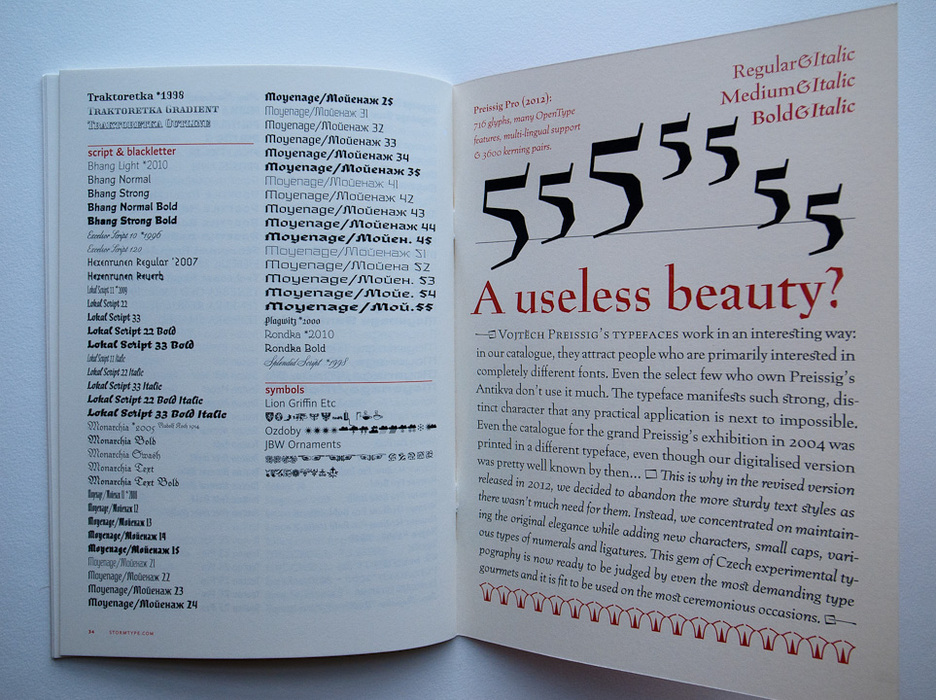 Traktoretka *1998
Traktoretka Gradient
Traktoretka Outline
script & blackletter
Bhang Light *2010
Bhang Normal
Bhang Strong
Bhang Normal Bold
Bhang Strong Bold
Excelsor Script 10 *1996
Excelsor Script 120
Hexenrunen Regular *2007
Hexenrunen Reverb
Lokal Script 11 *2009
Lokal Script 22
Lokal Script 33
Lokal Script 22 Bold
Lokal Script 33 Bold
Lokal Script 11 Italic
Lokal Script 22 Italic
Lokal Script 33 Italic
Lokal Script 22 Bold Italic
Lokal Script 33 Bold Italic
Monarchia *2005
Monarchia Bold
Monarchia Swash
Monarchia Text
Monarchia Text Bold
Moyenage/Мойенаж 11 *2008
Moyenage/Мойенаж 12
Moyenage/Мойенаж 13
Moyenage/Мойенаж 14
Moyenage/Мойенаж 15
Moyenage/Мойенаж 21
Moyenage/Мойенаж 22
Moyenage/Мойенаж 23
Moyenage/Мойенаж 24
34 STORMTYPE.COM
Moyenage/Мойенаж 25
Moyenage/Мойенаж 31
Moyenage/Мойенаж 32
Moyenage/Мойенаж 33
Moyenage/Мойенаж 34
Moyenage/Мойенаж 35
Moyenage/Мойенаж 41
Moyenage/Мойенаж 42
Moyenage/Мойенаж 43
Moyenage/Мойенаж 44
Moyenage/Мойен. 45
Moyenage/Мойенаж 51
Moyenage/Мойена 52
Moyenage/Мойен. 53
Moyenage/Мойе. 54
Moyenage/Мой.55
Plagwitz *2000
Rondka *2010
Rondka Bold
Splendid Script *1998
symbols
Lion Griffin Etc
Ozdoby
JBW Ornaments
Preissig Pro (2012):
716 glyphs, many OpenType
features, multi-lingual support
& 3600 kerning pairs.
Regular&Italic
Medium&Italic
Bold&Italic
55555555
A useless beauty?
Vojtěch Preissig's typefaces work in an interesting way:
in our catalogue, they attract people who are primarily interested in
completely different fonts. Even the select few who own Preissig's
Antikva don't use it much. The typeface manifests such strong, dis-
tinct character that any practical application is next to impossible.
Even the catalogue for the grand Preissig's exhibition in 2004 was
printed in a different typeface, even though our digitalised version
was pretty well known by then... This is why in the revised version
released in 2012, we decided to abandon the more sturdy text styles as
there wasn't much need for them. Instead, we concentrated on maintain-
ing the original elegance while adding new characters, small caps, vari-
ous types of numerals and ligatures. This gem of Czech experimental ty-
pography is now ready to be judged by even the most demanding type
gourmets and it is fit to be used on the most ceremonious occasions.